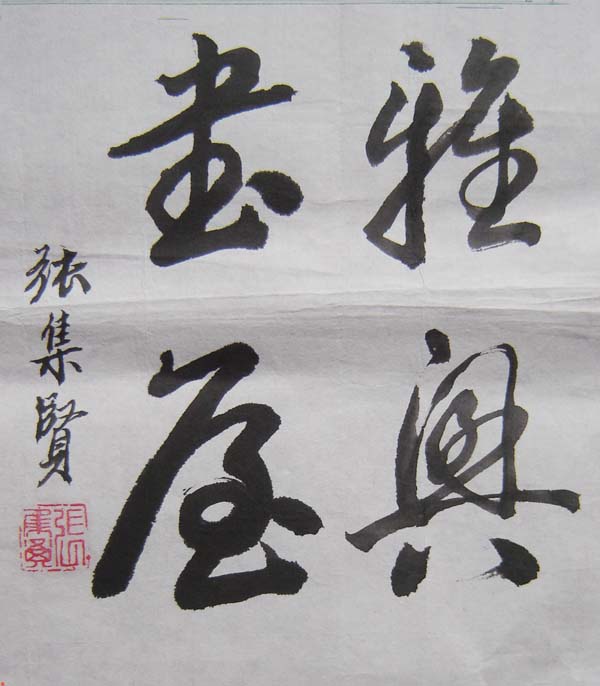 雅興
書屋
張集賢